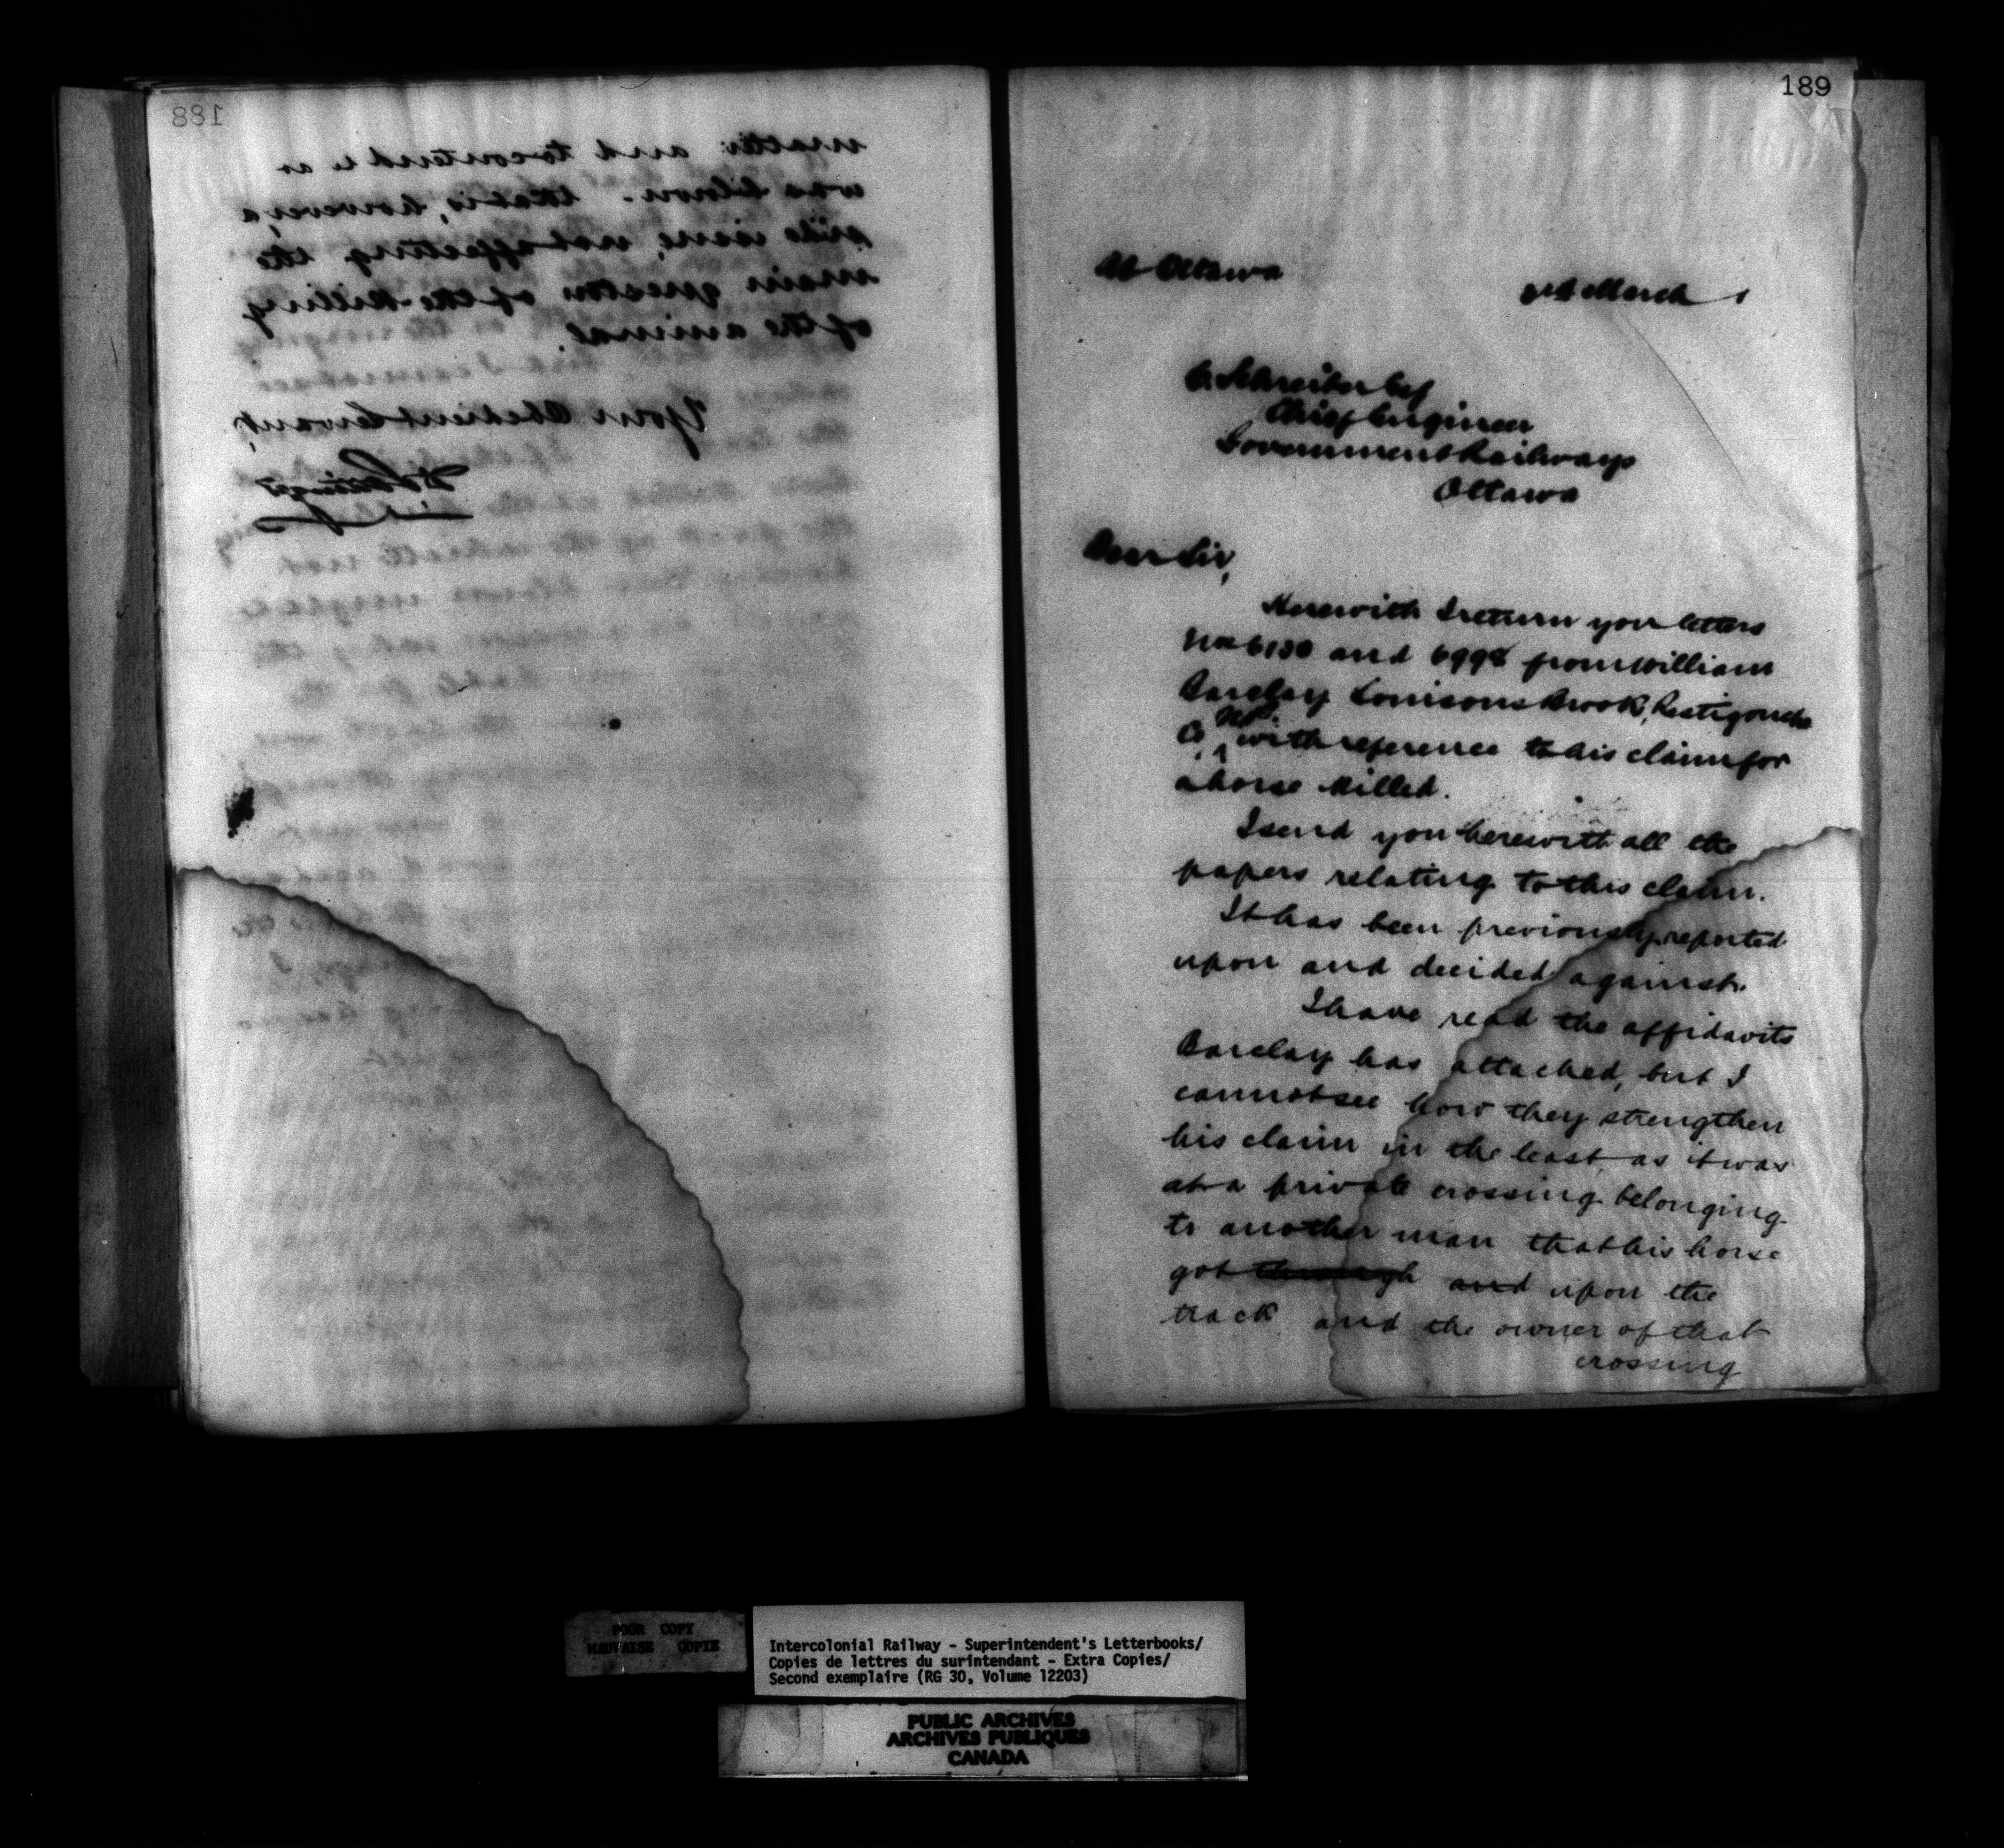 188
matter and to contend it as
was blown. - that is, however, a
side issue, not affecting the
main question of the killing
of the animal.
Your Obedient Servant,
189
At Ottawa
March
C. Schreiber Esq
Chief Engineer
Government Railways
Ottawa
Dear Sir,
Herewith I return you letters
and 6998 from William
Barclay Louisons Brook, Restigouche
Co. N.B. with reference to his claim for
a horse killed.
I send you herewith all the
papers relating to this claim.
It has been previously reported
upon and decided against.
I have read the affidavits
Barclay has attached, but I
cannot see how they strengthen
his claim in the least, as it was
at a private crossing belonging
to another man that his horse
got through and upon the
track and the owner of that
crossing
POOR COPY
MAUVAISE COPIE
Intercolonial Railway - Superintendent's Letterbooks/
Copies de lettres du surintendant - Extra Copies/
Second exemplaire (RG 30, Volume 12203)
PUBLIC ARCHIVES
ARCHIVES PUBLIQUES
CANADA